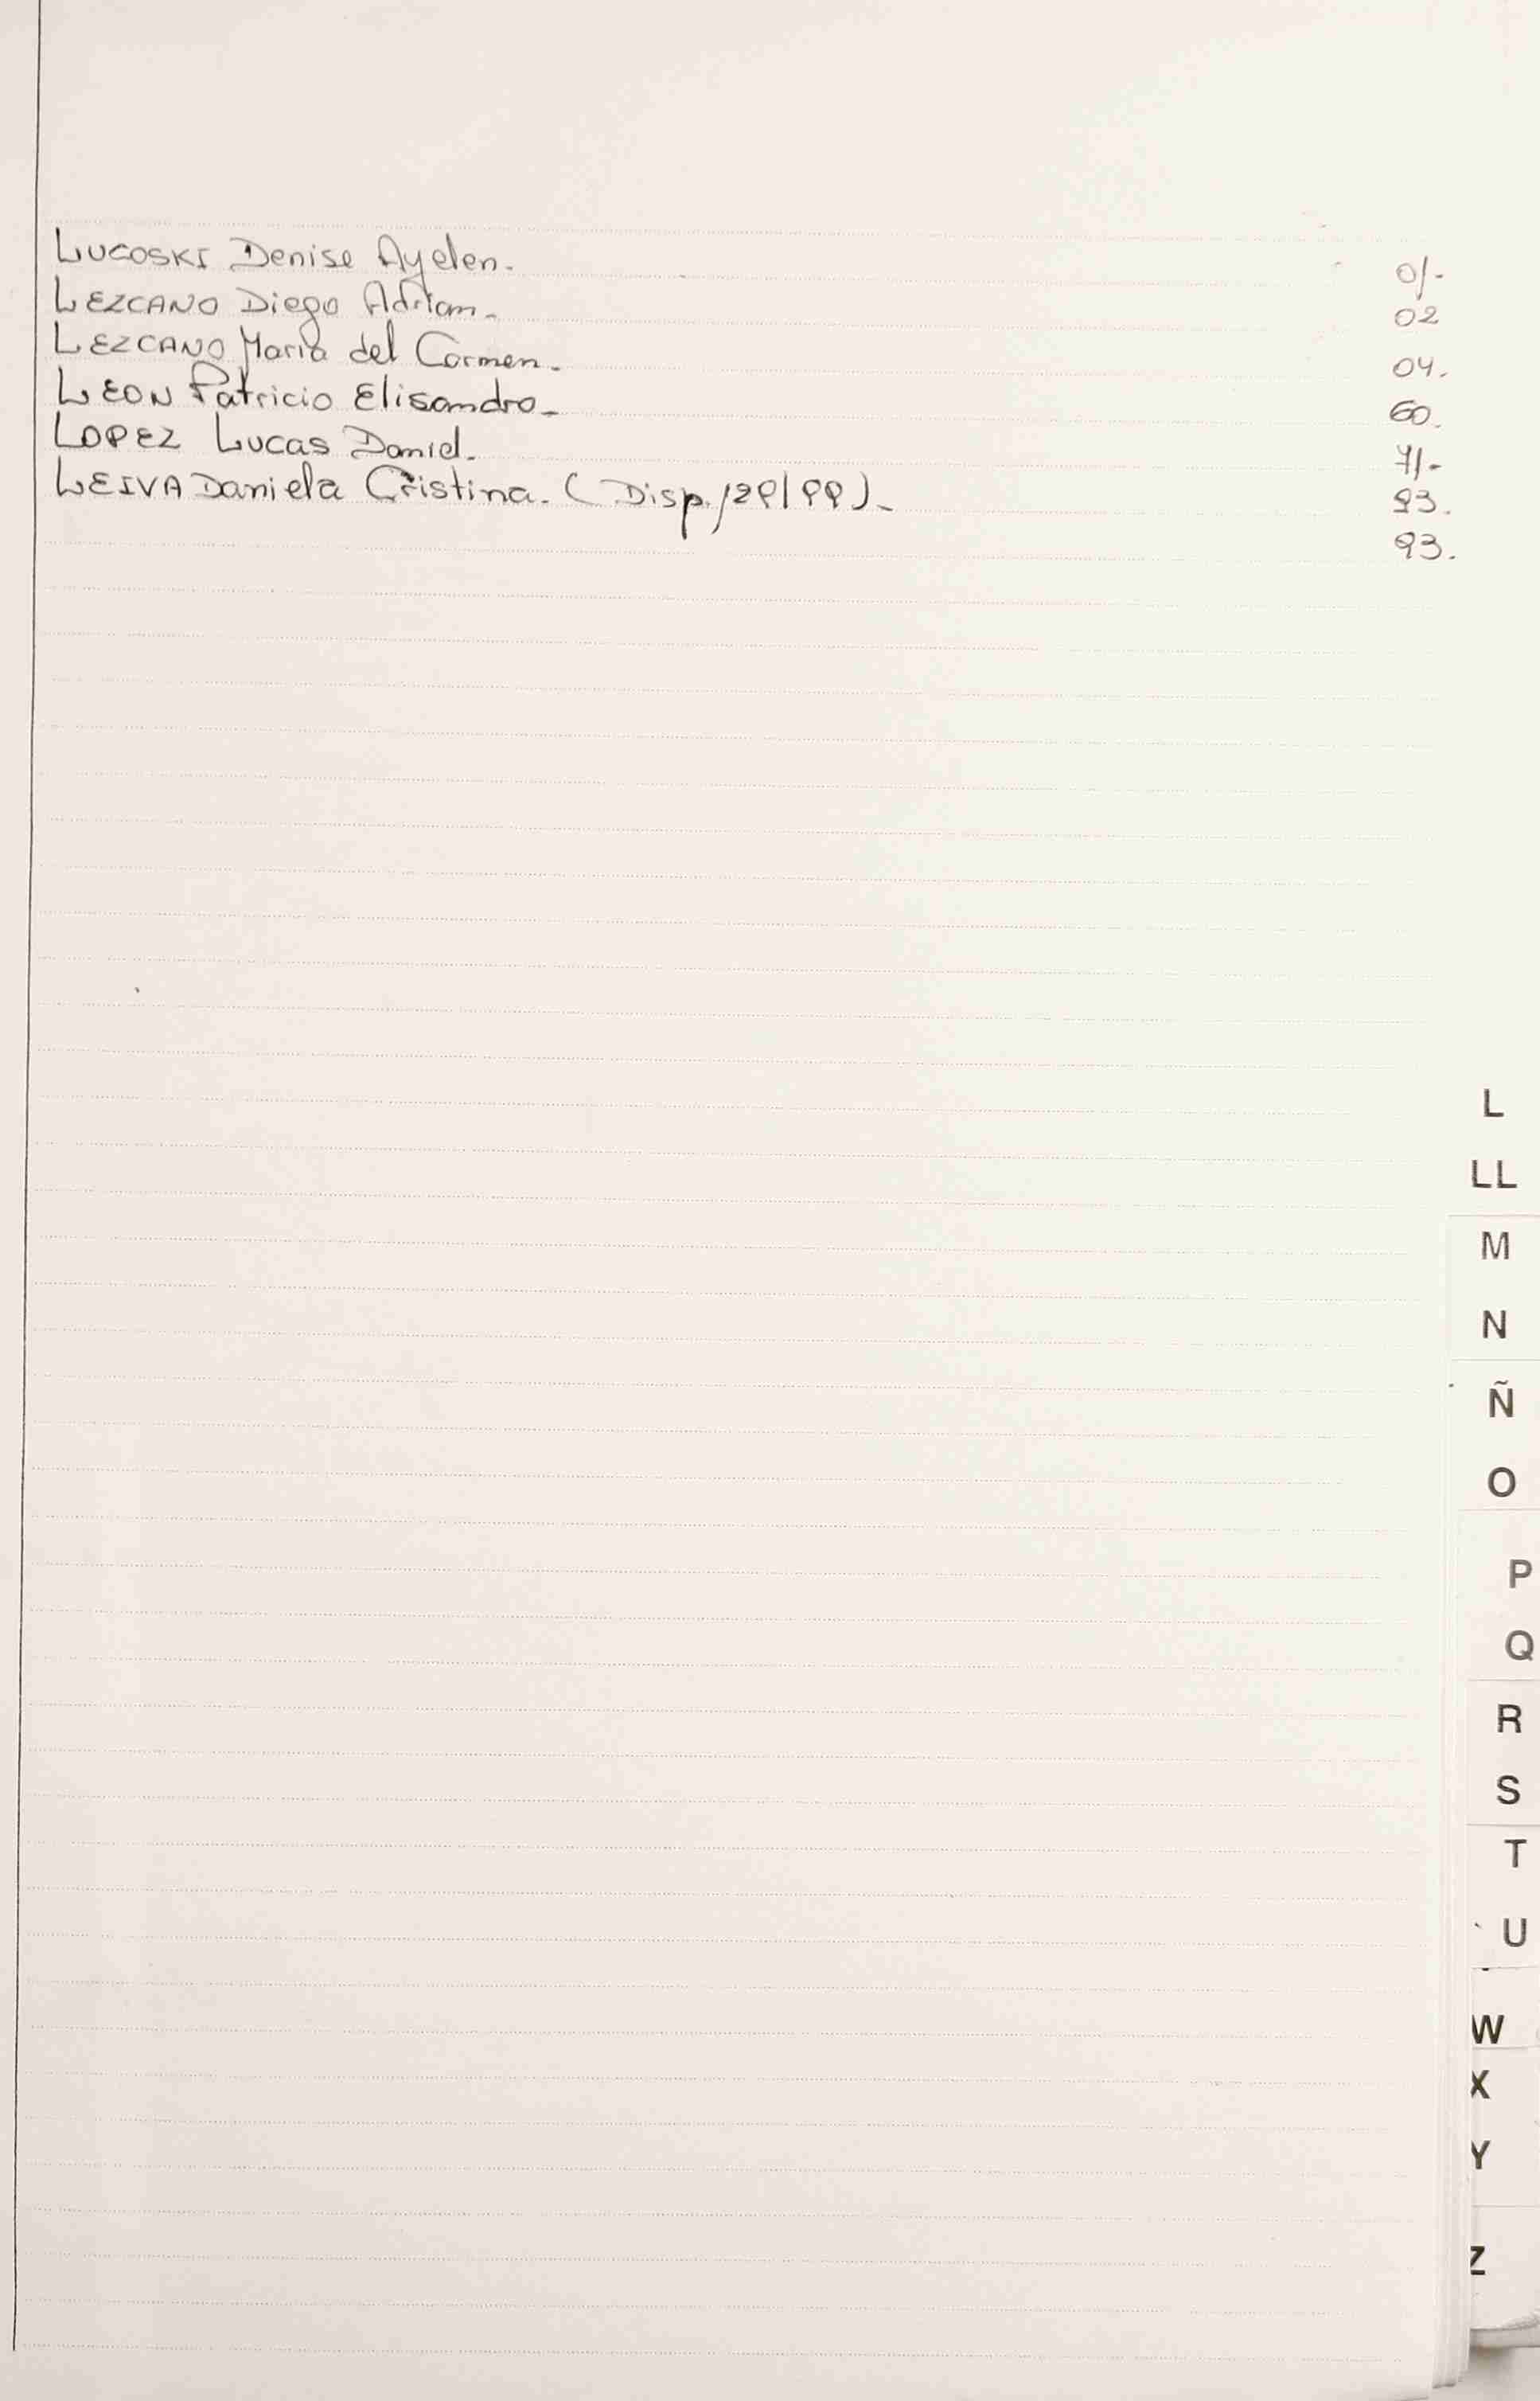 LUCOSKI Denise Ayelen. 01-
LEZCANO Diego Adrian- 02
LEZCANO Maria del Carmen- 04.
LEON Patricio Elisandro- 60.
LOPEZ Lucas Daniel. 71-
LEIVA Daniela Cristina. (Disp. 129/99)- 93.
93.
L
LL
M
N
Ñ
O
P
Q
R
S
T
U
W
X
Y
Z